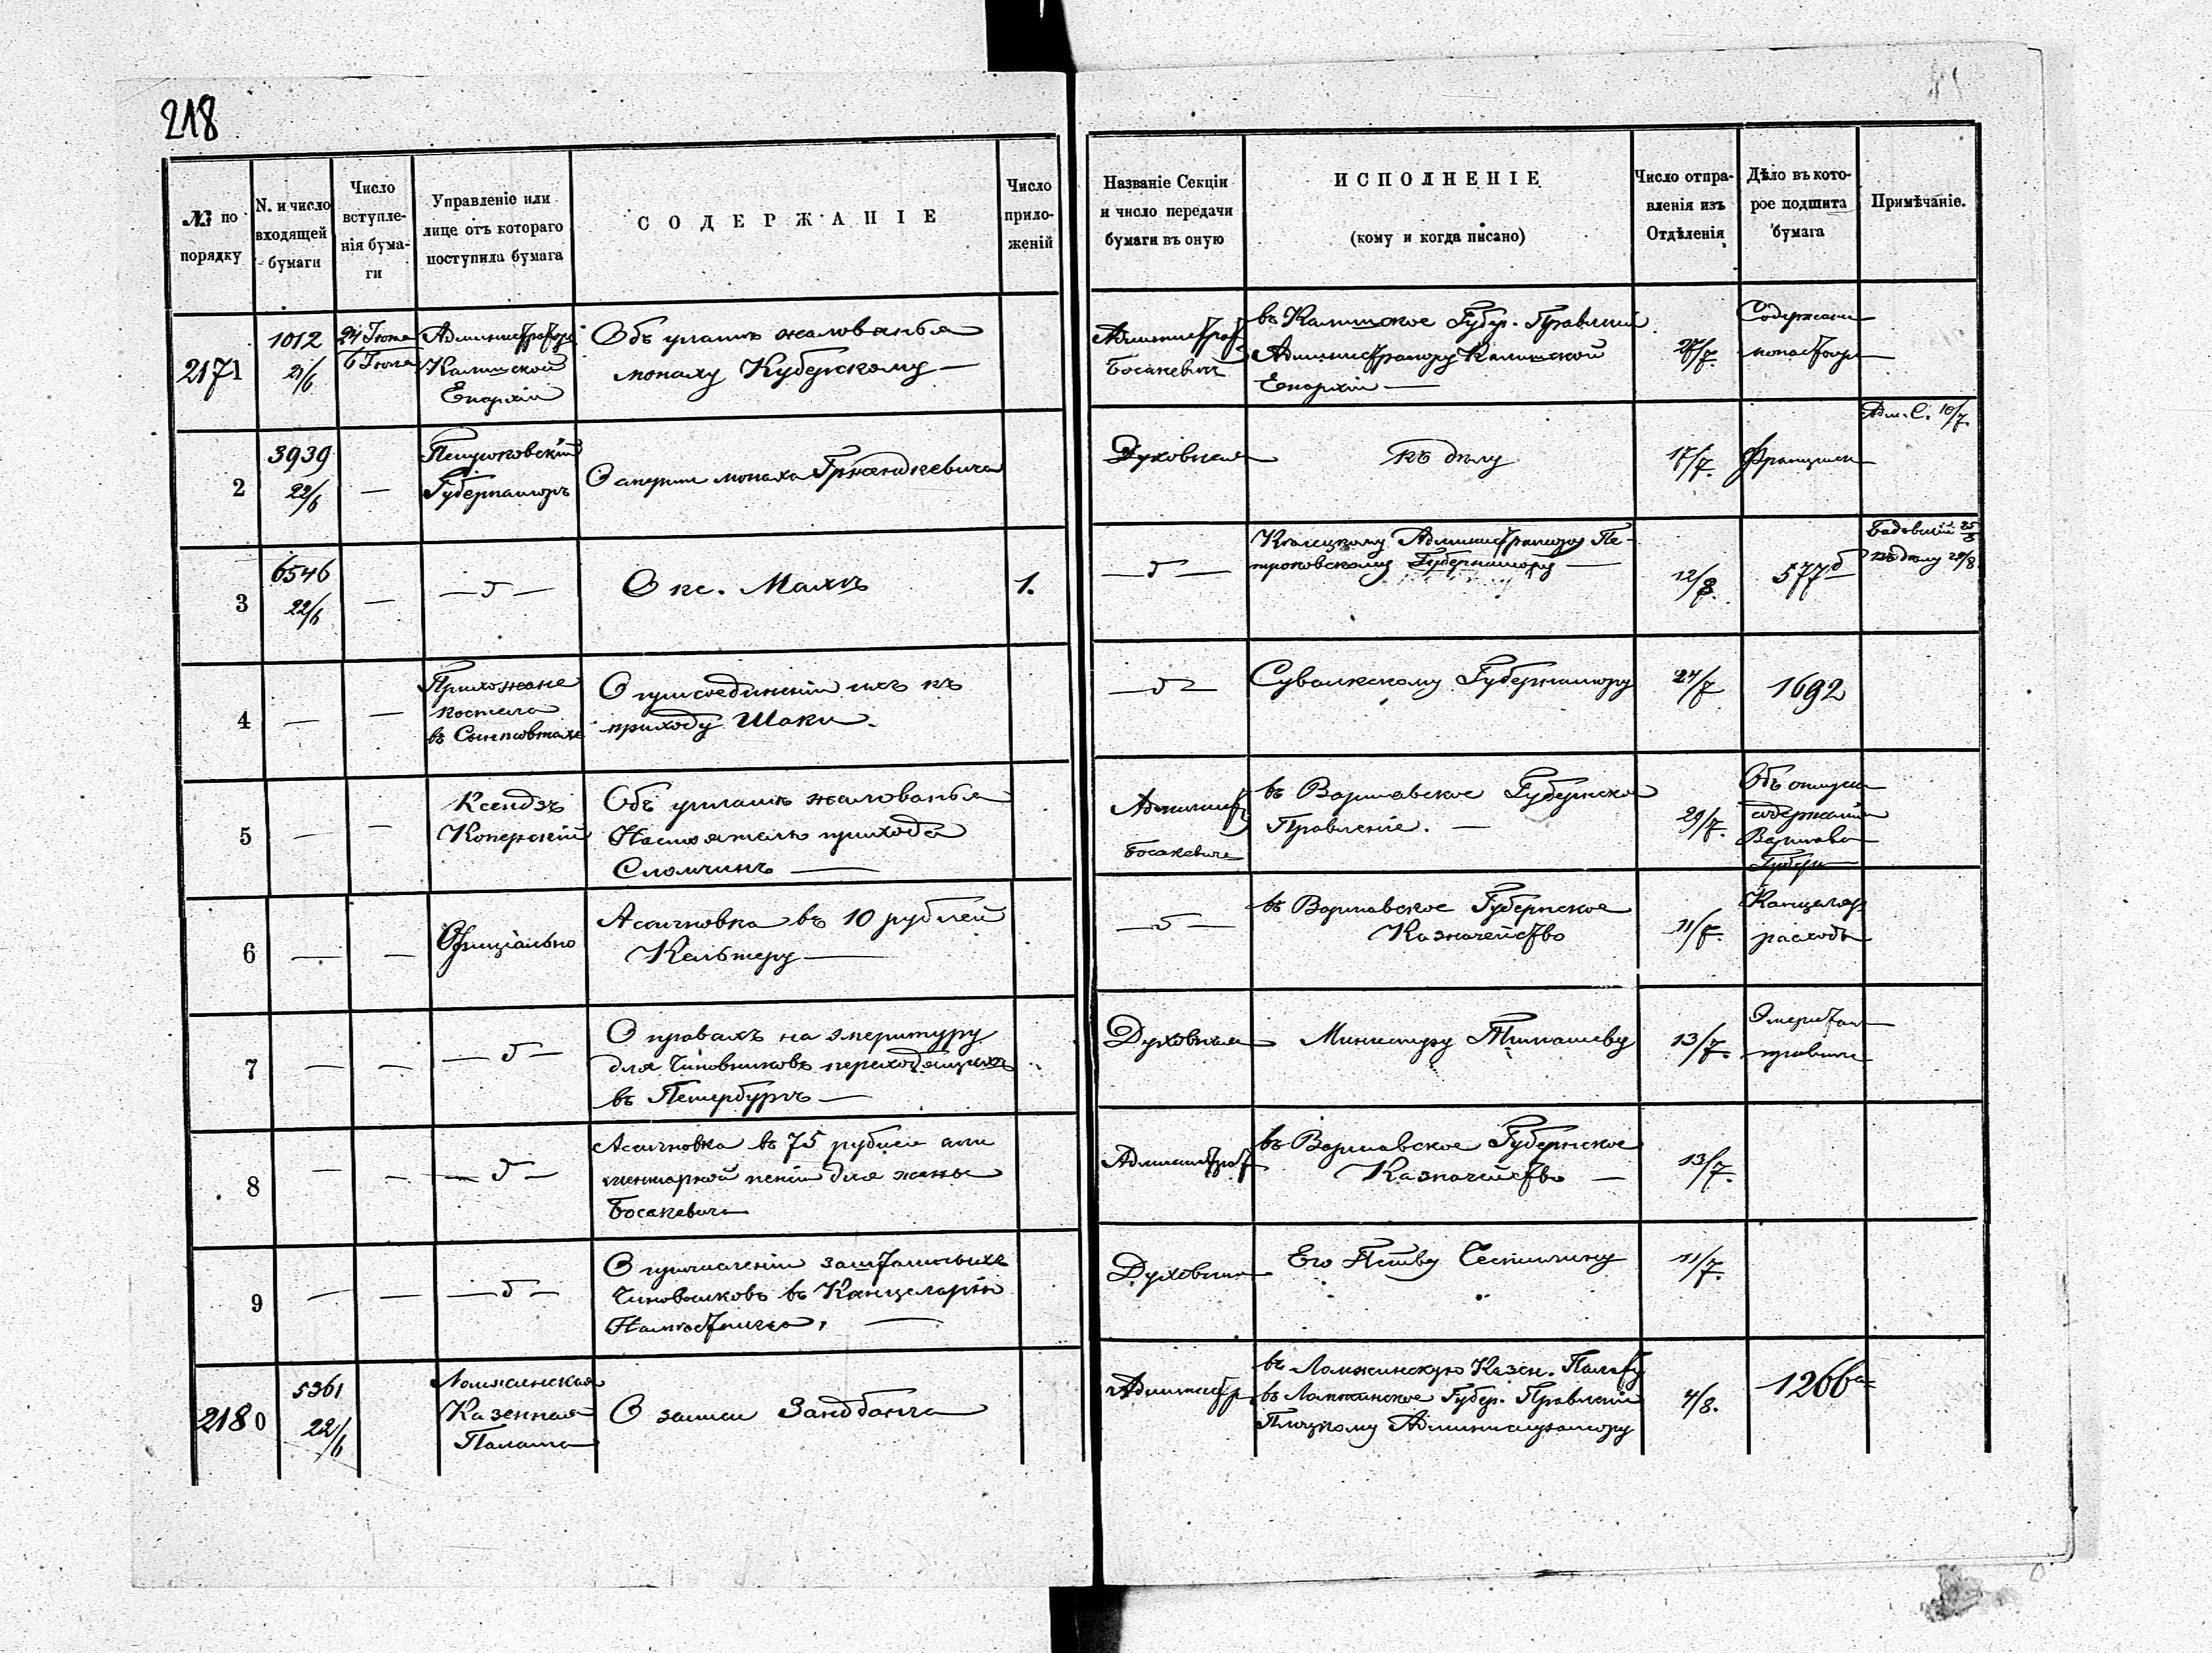 218
№ по порядку
N. и число входящей бумаги
Число вступленія бумаги
Управленіе или лице отъ котораго поступила бумага
СОДЕРЖАНІЕ
Число приложеній
Названіе Секціи и число передачи бумаги въ оную
ИСПОЛНЕНІЕ
(кому и когда писано)
Число отправленія изъ Отдѣленія
Дѣло въ которое подшита бумага
Примѣчаніе.
2171
1012
21/6
24 Іюня
6 Іюля
Администратора
Калишской
Епархіи
Объ уплатѣ жалованья
монаху Куберскому —
Администрат
Босакевичъ
въ Калишское Губер. Правленіе
Администратору Калишской
Епархіи —
27/7.
Содержани
монастыр
2
3939
22/6
—
Петроковскій
Губернаторъ
О смерти монаха
Духовная
къ дѣлу
17/7.
Францишк
Адм. С. 10/7.
3
6546
22/6
—
— „ —
О кс.
1.
— „ —
Кѣлецкому Администратору Пе-
троковскому Губернатору —
12/8.
577б
къ дѣлу 28/8
4
—
—
Прихожане
костела
въ
О присоединеніи ихъ къ
приходу Шаки.
— „ —
Сувалкскому Губернатору
24/7
1692
5
—
—
Ксендзъ
Коперскій
Объ уплатѣ жалованья
Настоятелю прихода
Сломчинъ —
Админист
Босакевичъ
въ Варшавское Губернское
Правленіе. —
29/7.
Объ отпуск
содержанія
Варшавс
Губерн
6
—
—
Официально
Ассигновка въ 10 рублей
Кельтеру —
— „ —
въ Варшавское Губернское
Казначейство
11/7.
Канцеляр
расходы
7
—
—
— „ —
О правахъ на эмеритуру
для Чиновниковъ переходящихъ
въ Петербургъ —
Духовная
Министру Тимашеву
13/7.
Эмеритал
правила
8
—
—
— „ —
Ассигновка въ 75 рублей али
ментарной пенсіи для жены
Босакевича
Администрат
въ Варшавское Губернское
Казначейство —
13/7.
9
—
—
— „ —
О причисленіи заштатныхъ
Чиновниковъ въ Канцелярію
Намѣстника, —
Духовная
Его
11/7.
2180
5361
22/6
Ломжинская
Казенная
Палата
О записи
Администр
въ Ломжинскую Казен. Палату
въ Ломжинское Губер. Правленіе
Плоцкому Администратору
4/8.
1266